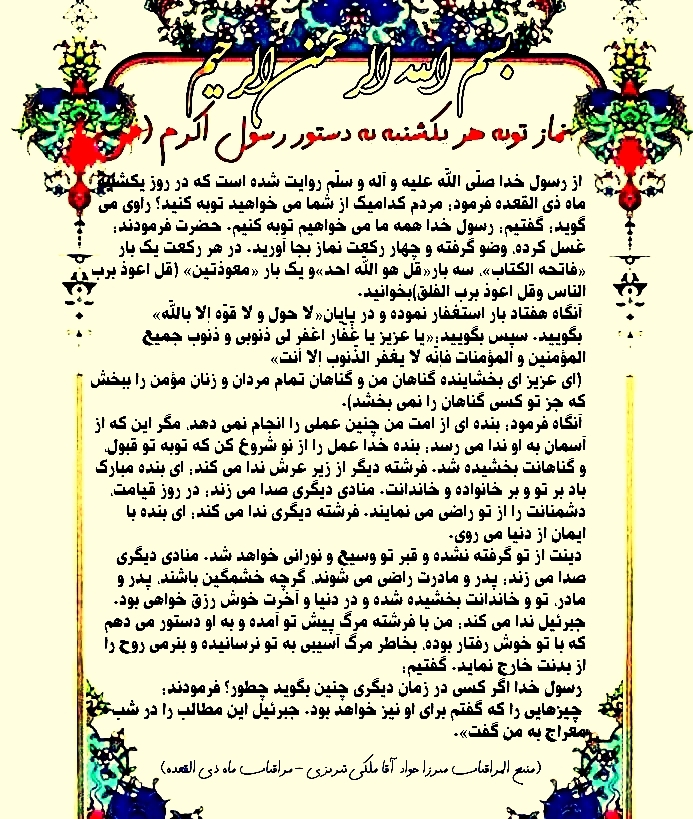 بسم الله الرحمن الرحیم
نماز توبه هر یکشنبه به دستور رسول اکرم (
از رسول خدا صلّی اللّه علیه و آله و سلّم روایت شده است که در روز یکشنبه
ماه ذی القعده فرمود: مردم کدامیک از شما می خواهید توبه کنید؟ راوی می
گوید: گفتیم: رسول خدا همه ما می خواهیم توبه کنیم. حضرت فرمودند:
غسل کرده، وضو گرفته و چهار رکعت نماز بجا آورید. در هر رکعت یک بار
«فاتحه الکتاب»، سه بار«قل هو اللّه احد»و یک بار «معوذتین» (قل اعوذ برب
الناس وقل اعوذ برب الفلق)بخوانید.
آنگاه هفتاد بار استغفار نموده و در پایان«لا حول و لا قوّه إلا باللّه»
بگویید. سپس بگویید:«یا عزیز یا غفّار اغفر لی ذنوبی و ذنوب جمیع
المؤمنین و المؤمنات فانّه لا یغفر الذّنوب إلا أنت»
(ای عزیز ای بخشاینده گناهان من و گناهان تمام مردان و زنان مؤمن را ببخش
که جز تو کسی گناهان را نمی بخشد).
آنگاه فرمود: بنده ای از امت من چنین عملی را انجام نمی دهد، مگر این که از
آسمان به او ندا می رسد: بنده خدا عمل را از نو شروع کن که توبه تو قبول،
و گناهانت بخشیده شد. فرشته دیگر از زیر عرش ندا می کند: ای بنده مبارک
باد بر تو و بر خانواده و خاندانت. منادی دیگری صدا می زند: در روز قیامت،
دشمنانت را از تو راضی می نمایند. فرشته دیگری ندا می کند: ای بنده با
ایمان از دنیا می روی.
دینت از تو گرفته نشده و قبر تو وسیع و نورانی خواهد شد. منادی دیگری
صدا می زند: پدر و مادرت راضی می شوند، گرچه خشمگین باشند، پدر و
مادر، تو و خاندانت بخشیده شده و در دنیا و آخرت خوش رزق خواهی بود.
جبرئیل ندا می کند: من با فرشته مرگ پیش تو آمده و به او دستور می دهم
که با تو خوش رفتار بوده، بخاطر مرگ آسیبی به تو نرسانیده و بنرمی روح را
از بدنت خارج نماید. گفتیم:
رسول خدا اگر کسی در زمان دیگری چنین بگوید چطور؟ فرمودند:
چیزهایی را که گفتم برای او نیز خواهد بود. جبرئیل این مطالب را در شب
معراج به من گفت».
(منبع المراقبات میرزا جواد آقا ملکی تبریزی – مراقبات ماه ذی القعده)